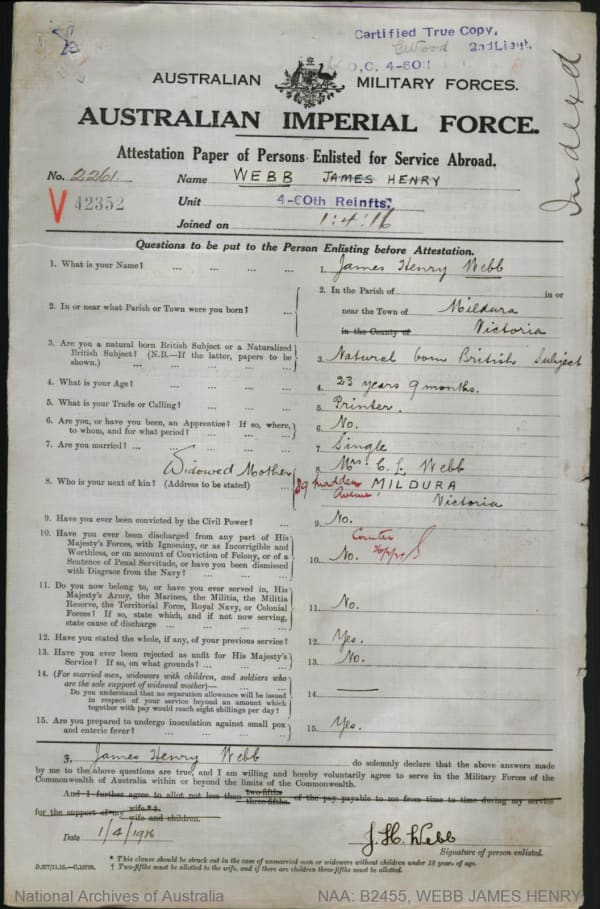 Certified True Copy,
2nd Lieut.
O.C. 4-60
Indexed
AUSTRALIAN MILITARY FORCES.
AUSTRALIAN IMPERIAL FORCE.
Attestation Paper of Persons Enlisted for Service Abroad.
No. 2261 Name WEBB JAMES HENRY
V 42352 Unit 4-60th Reinfts.
Joined on 1:4:16
Questions to be put to the Person Enlisting before Attestation.
1. What is your Name? ... ... ... ... 1. James Henry Webb
2. In or near what Parish or Town were you born? ... 2. In the Parish of in or
near the Town of Mildura
in the County of Victoria
3. Are you a natural born British Subject or a Naturalized
British Subject? (N.B.—If the latter, papers to be
shown.) ... ... ... ... 3. Natural born British Subject
4. What is your Age? ... ... ... ... 4. 23 years 9 months.
5. What is your Trade or Calling? ... ... ... 5. Printer.
6. Are you, or have you been, an Apprentice? If so, where,
to whom, and for what period? ... ... ... 6. No.
7. Are you married? ... ... ... ... 7. Single
Widowed Mother 8. Mrs. C. L. Webb
8. Who is your next of kin? (Address to be stated) ... 89 Madden MILDURA
Avenue Victoria
9. Have you ever been convicted by the Civil Power? ... 9. No.
10. Have you ever been discharged from any part of His
Majesty's Forces, with Ignominy, or as Incorrigible and
Worthless, or on account of Conviction of Felony, or of a
Sentence of Penal Servitude, or have you been dismissed
with Disgrace from the Navy? ... ... ... 10. No.
11. Do you now belong to, or have you ever served in, His
Majesty's Army, the Marines, the Militia, the Militia
Reserve, the Territorial Force, Royal Navy, or Colonial
Forces? If so, state which, and if not now serving,
state cause of discharge ... ... ... 11. No.
12. Have you stated the whole, if any, of your previous service? 12. Yes.
13. Have you ever been rejected as unfit for His Majesty's
Service? If so, on what grounds? ... ... ... 13. No.
14. (For married men, widowers with children, and soldiers who
are the sole support of widowed mother)—
Do you understand that no separation allowance will be issued
in respect of your service beyond an amount which
together with pay would reach eight shillings per day? 14. —
15. Are you prepared to undergo inoculation against small pox
and enteric fever? ... ... ... ... 15. Yes.
I, James Henry Webb do solemnly declare that the above answers made
by me to the above questions are true, and I am willing and hereby voluntarily agree to serve in the Military Forces of the
Commonwealth of Australia within or beyond the limits of the Commonwealth.
And I further agree to allot not less than two-fifths three-fifths of the pay payable to me from time to time during my service
for the support of my wife*†
wife and children.
Date 1/4/1916
J. H. Webb
Signature of person enlisted.
* This clause should be struck out in the case of unmarried men or widowers without children under 18 years of age.
† Two-fifths must be allotted to the wife, and if there are children three-fifths must be allotted.
National Archives of Australia NAA: B2455, WEBB JAMES HENRY